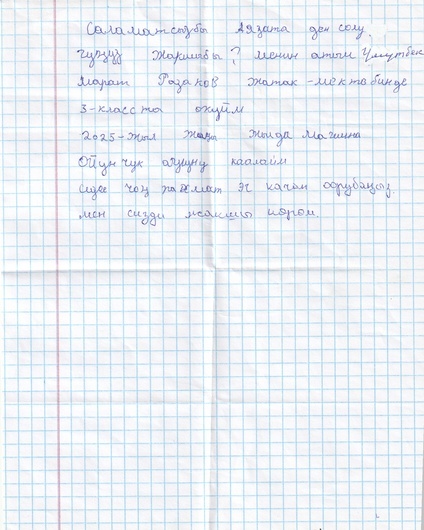 Саламатсызбы Аязата ден солу
гунуз жакшыбы? менин атым Умутбек
Марат Разаков жатак-мектебинде
3-класста окуйм
2025-жыл жаңы жылда Машина
Оюнчук алууну каалайм
Сизге чоң рахмат эч качан оорубаңыз.
мен сизди жакшы көрөм.